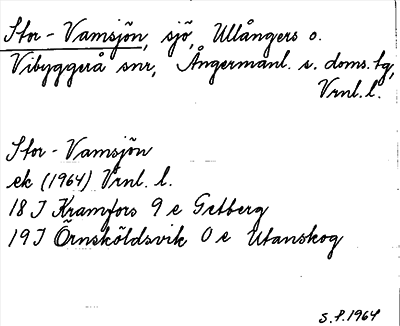 Stor-Vamsjön, sjö, Ullångers o.
Vibyggerå snr, Ångermanl. s. doms.tg,
Vrnl. l.
Stor-Vamsjön
ek (1964) Vrnl. l.
18 I Kramfors 9 e Getberg
19 I Örnsköldsvik 0 e Utanskog
S.P. 1964